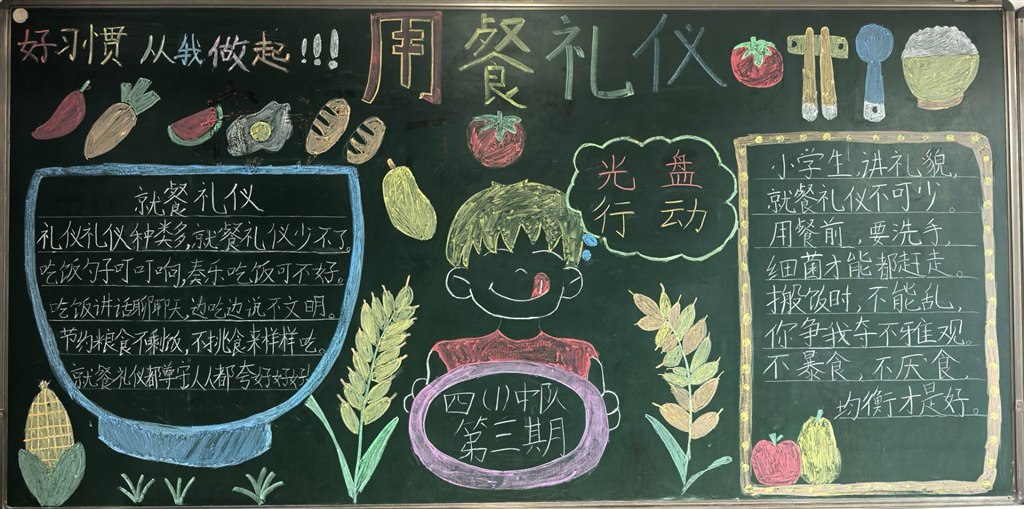 好习惯 从我做起!!!
用餐礼仪
就餐礼仪
礼仪礼仪种类多,就餐礼仪少不了。
吃饭勺子叮叮响,奏乐吃饭可不好。
吃饭讲话聊聊天,边吃边说不文明。
节约粮食不剩饭,不挑食来样样吃。
就餐礼仪都掌守人人都夸好好好!
光盘
行动
四(1)中队
第三期
小学生,讲礼貌,
就餐礼仪不可少。
用餐前,要洗手,
细菌才能都赶走。
搬饭时,不能乱,
你争我夺不雅观。
不暴食,不厌食
均衡才是好。